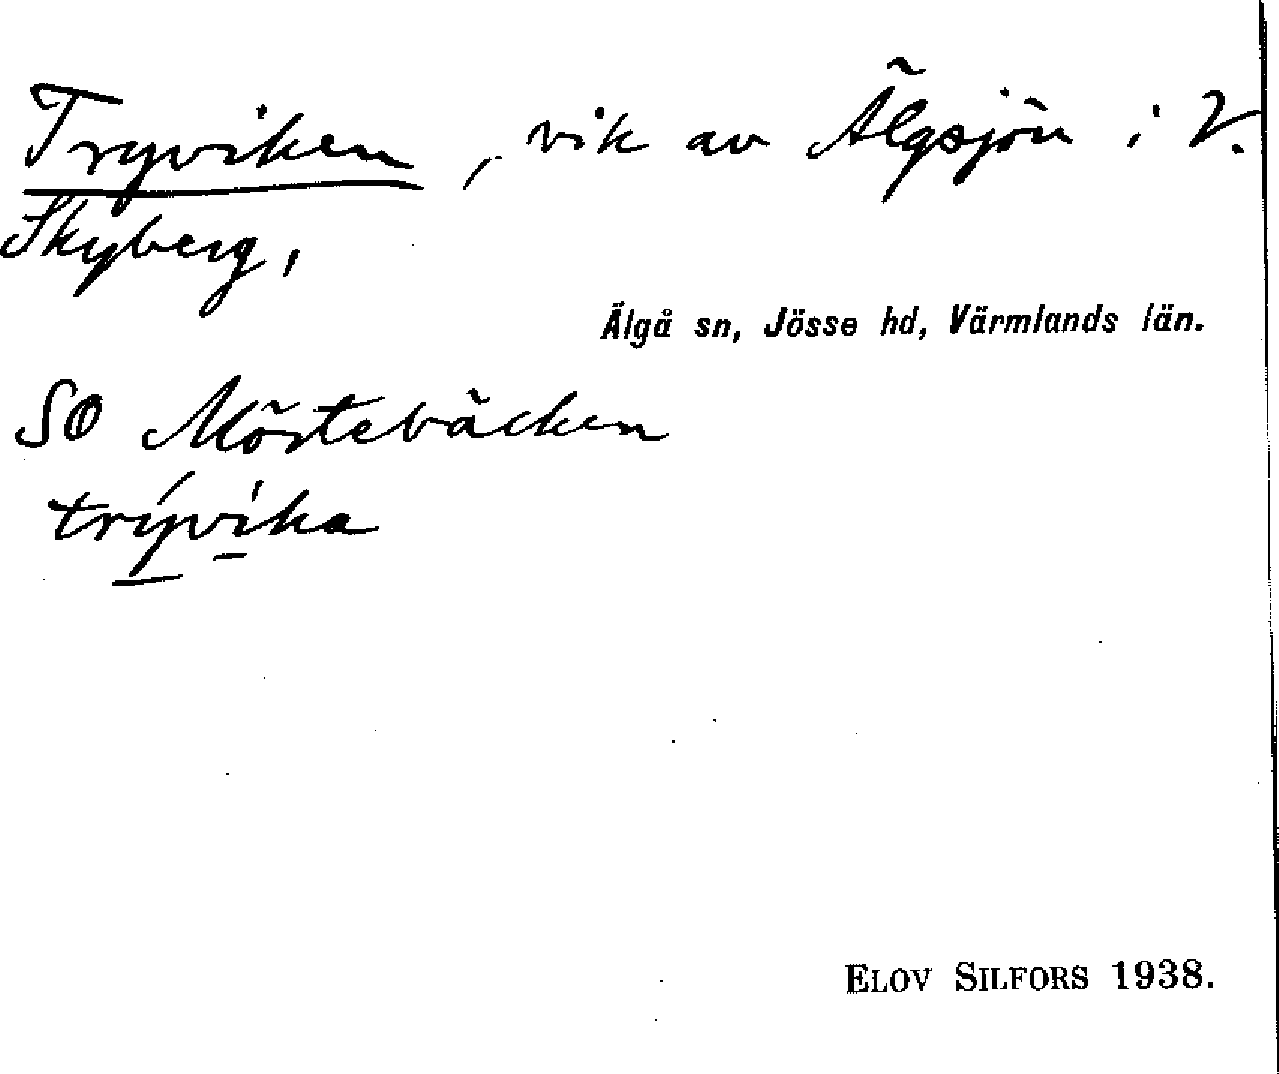 Tryviken, vik av Älgsjön i V.
Skyberg,
Älgå sn, Jösse hd, Värmlands län.
SO Möstebäcken
trývika
ELOV SILFORS 1938.